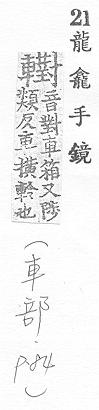 21 龍龕手鏡
轛
音對車箱又陟
類反重橫軨也
(車部, p.84)